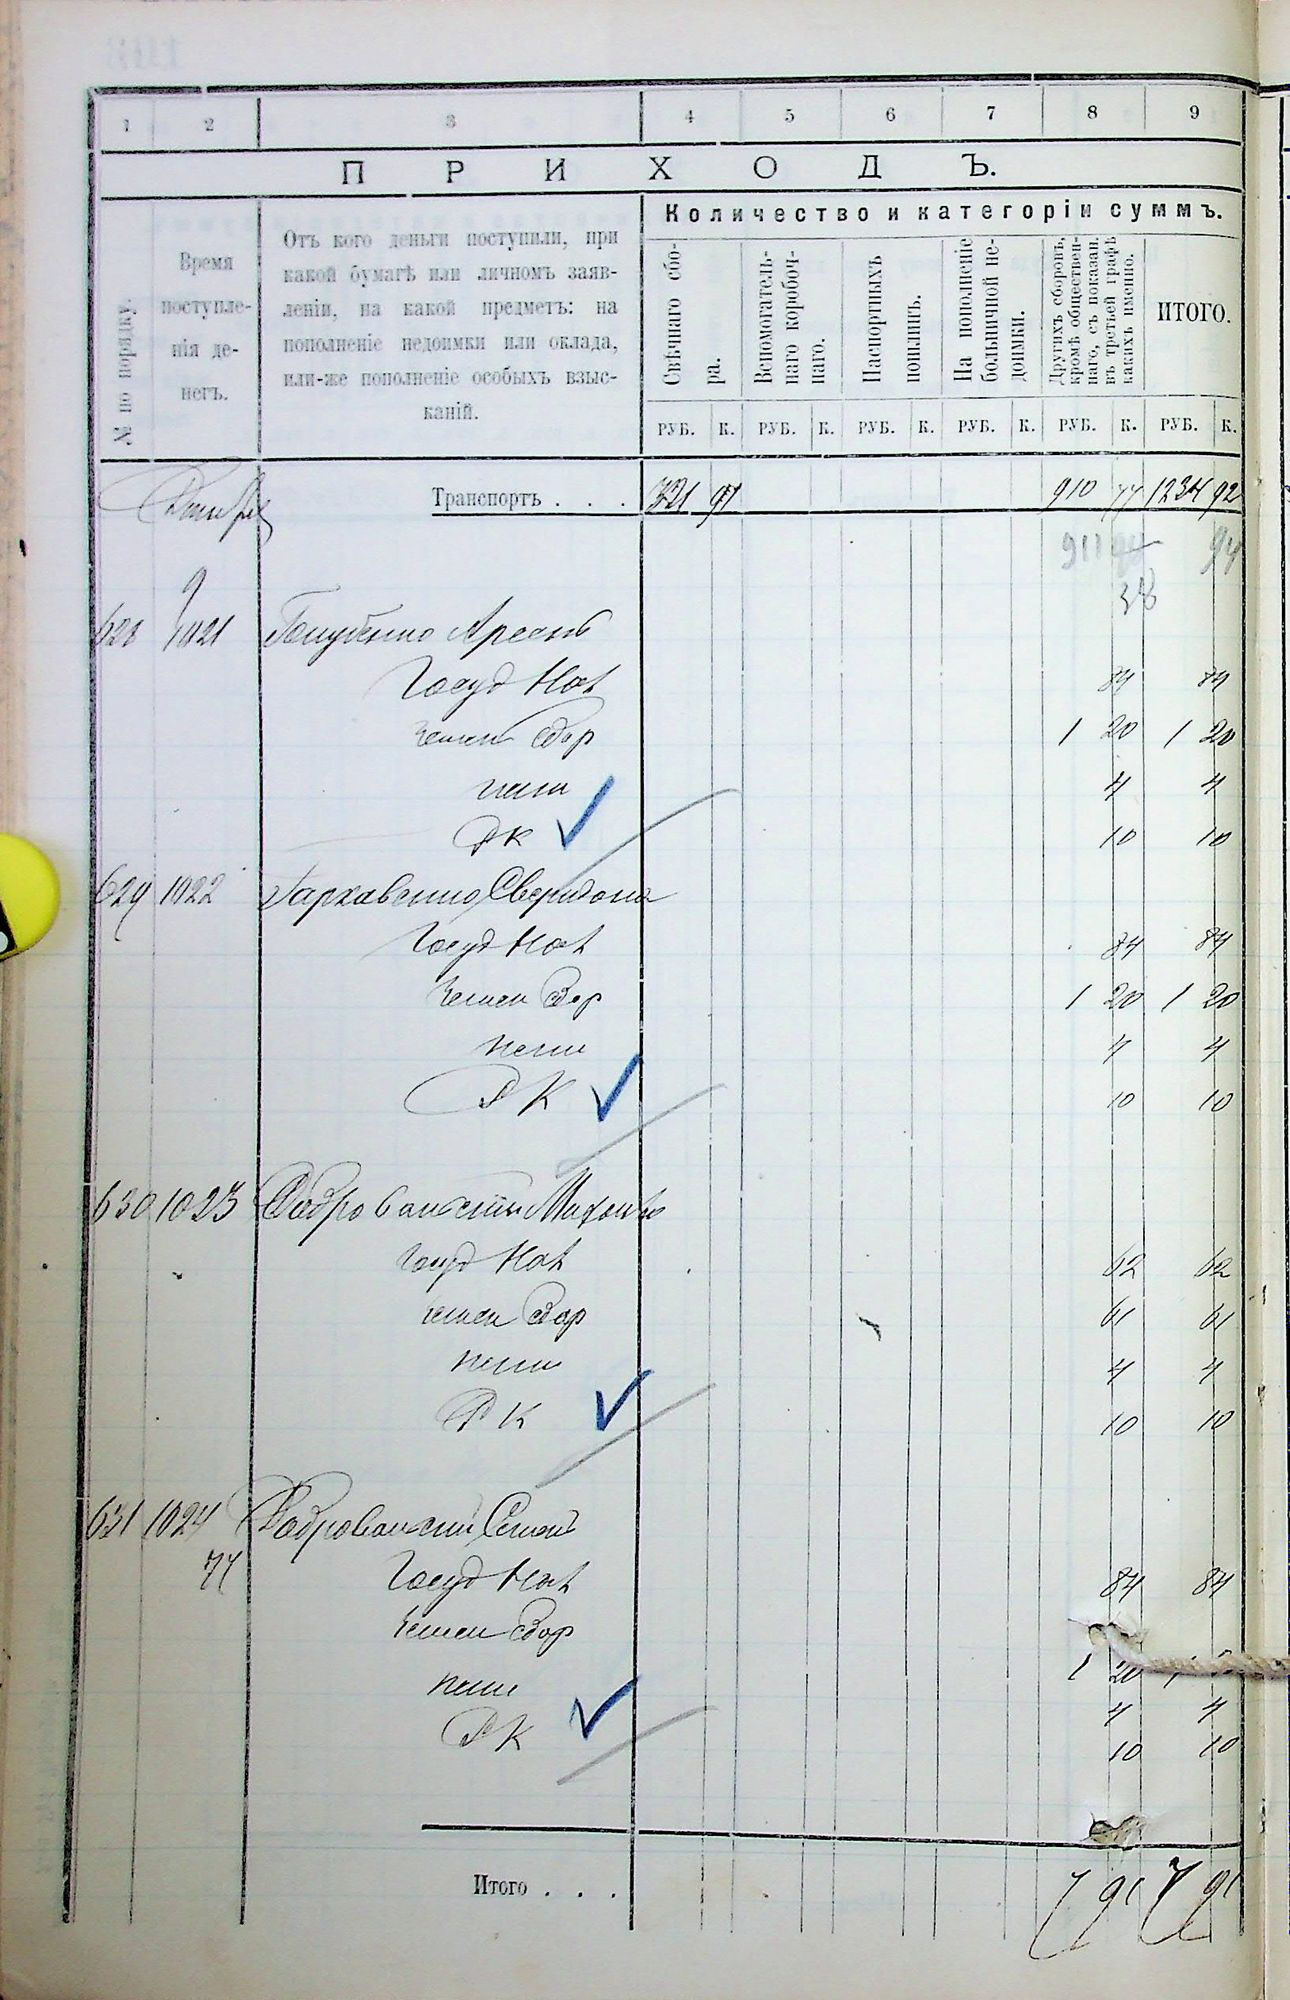 1 2 3 4 5 6 7 8 9
ПРИХОДЪ.
№ по порядку.
Время поступле-
нія де-
негъ.
Отъ кого деньги поступили, при
какой бумагѣ или личномъ заяв-
леніи, на какой предметъ: на
пополненіе недоимки или оклада,
или-же пополненіе особыхъ взыс-
каній.
Количество и категоріи суммъ.
Свѣчнаго сбо-
ра.
Вспомогатель-
наго коробоч-
наго.
Паспортныхъ
пошлинъ.
На пополненіе
больничной не-
доимки.
Другихъ сборовъ,
кромѣ обществен-
наго, съ показан.
въ третьей графѣ
какихъ именно.
ИТОГО.
РУБ. К. РУБ. К. РУБ. К. РУБ. К. РУБ. К. РУБ. К.
Транспортъ . . . 321 97 910 77 1234 92
911 94
38
628 9 1021 Голубенко Арсенъ
Госуд Нал 84 84
Земск Сбор 1 20 1 20
пени 4 4
РК 10 10
629 1022 Гархавенко Свиридонъ
Госуд Нал 84 84
Земск Сбор 1 20 1 20
пени 4 4
РК 10 10
630 1023 Домбровскій
Госуд Нал 62 62
Земск Сбор 61 61
пени 4 4
РК 10 10
631 1024 Семенъ
77 Госуд Нал 84 84
Земск Сбор
пени 1 20 1
РК 4 4
10 10
Итого . . . 7 91 7 91